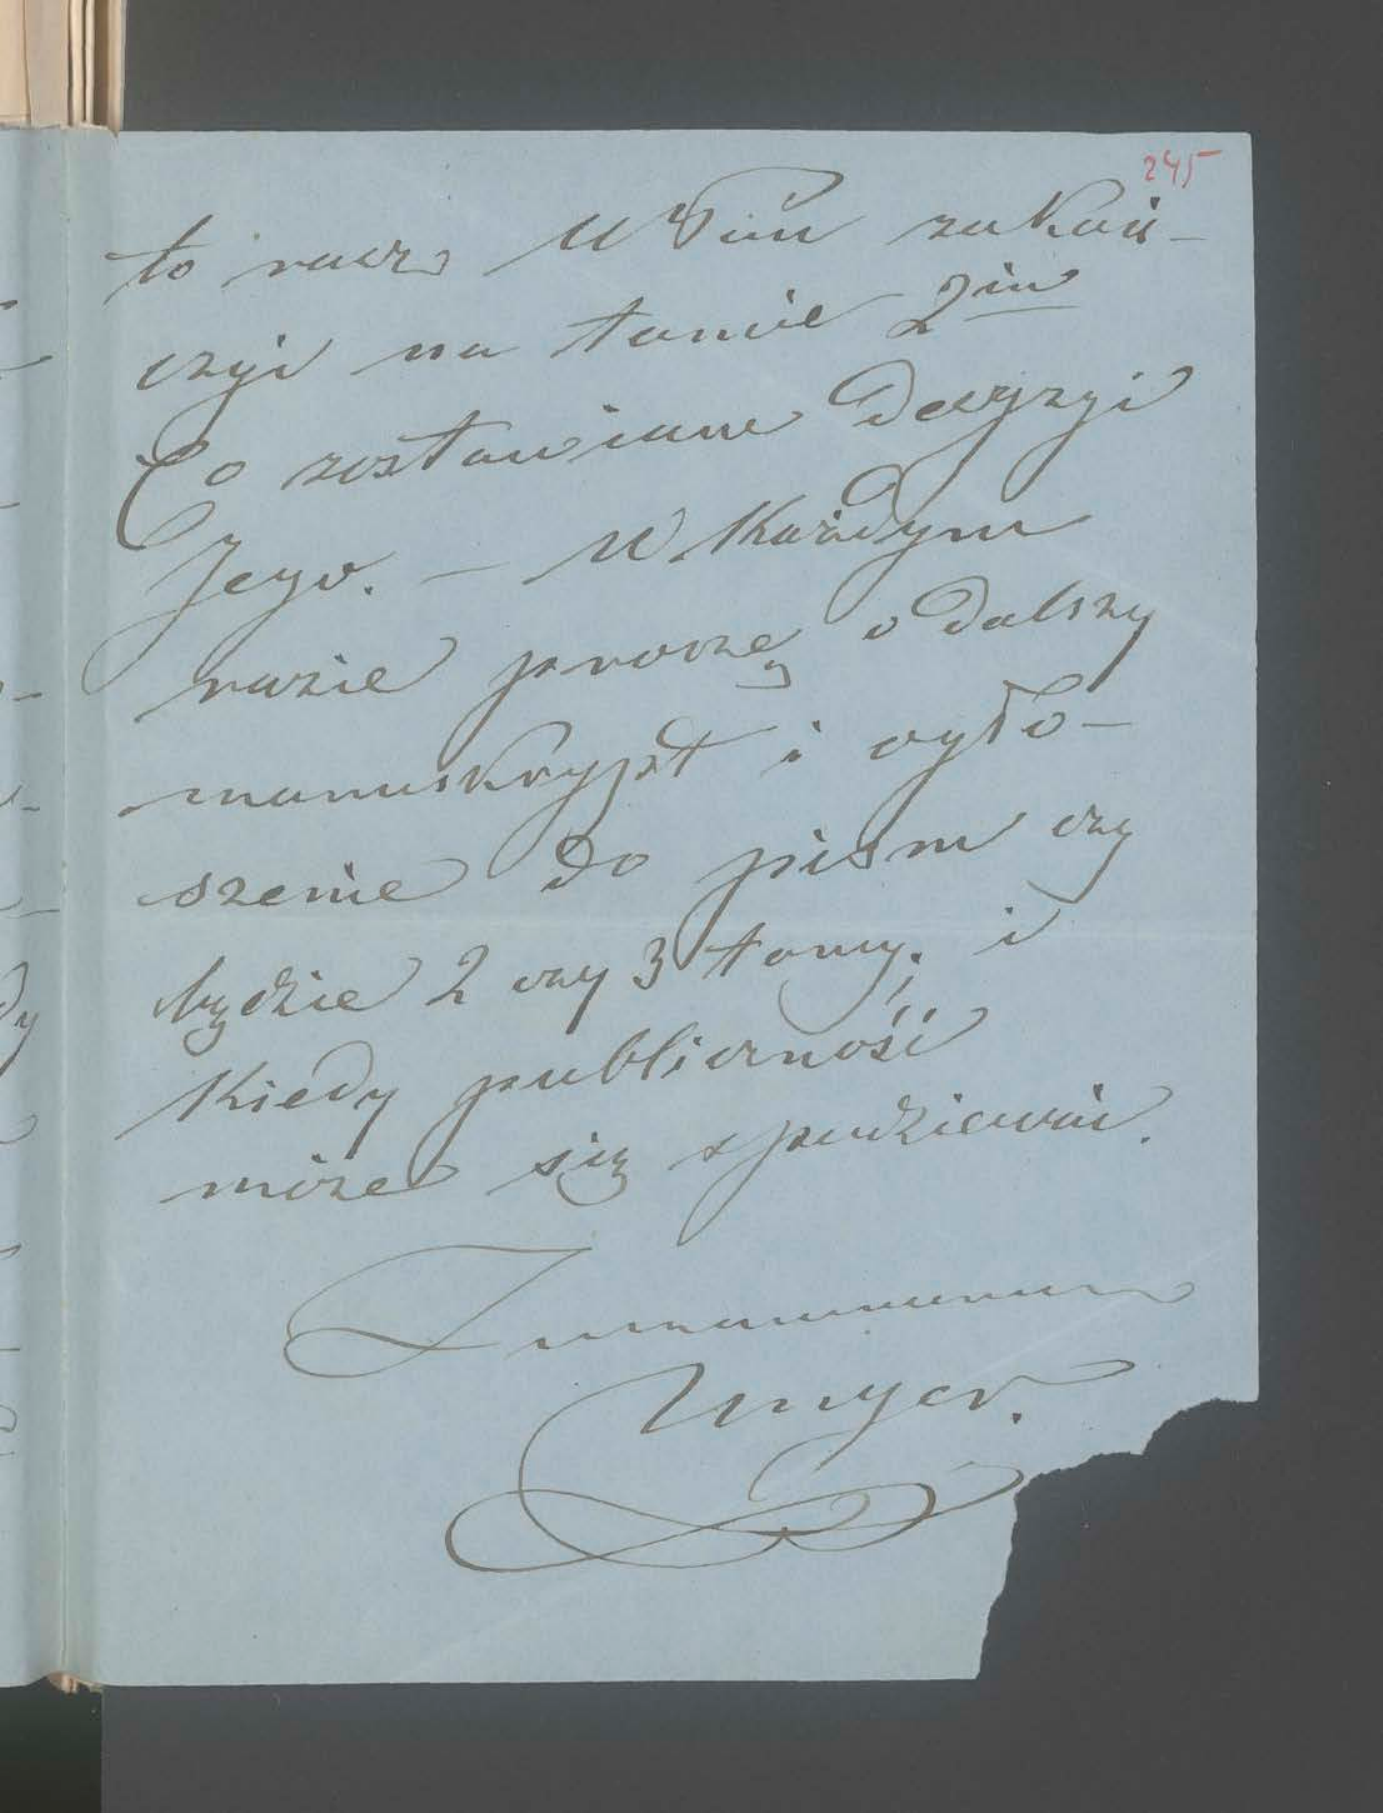 245
to racz WPan zakoń-
czyć na tomie 2im
Co zostawiam decyzyi
Jego. – W każdym
razie proszę o dalszy
manuskrypt i ogło-
szenie do pism czy
będzie 2 czy 3 tomy; i
kiedy publiczność
może się spodziewać.
Unger.